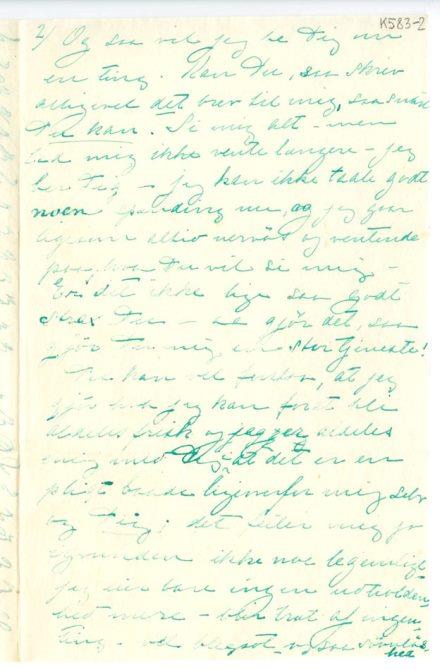 K583-2
2) Og saa vil jeg be Dig om
en ting. Kan Du, saa skriv
alligevel det brev til mig, saa snart
Du kan. Si mig alt – men
lad mig ikke vente længere – jeg
ber Dig – jeg kan ikke taale godt
noen spænding nu, og jeg gaar
ligesom altid nervøs og ventende
paa, hva Du vil si mig –
Er det ikke lige saa godt
strax Du – aa gjør det, saa
gjør Du mig en stor tjeneste!
Du kan vel forstaa, at jeg
gjør hva jeg kan for at bli
aldeles frisk og jeg er aldeles
enig med Dig, at det er en
pligt baade ligeoverfor mig selv
og Dig; det feiler mig jo
igrunden ikke noe legemligt
jeg eier bare ingen udholden-
hed mere – blir træt af ingen-
ting – og saa søvnløs-
hed